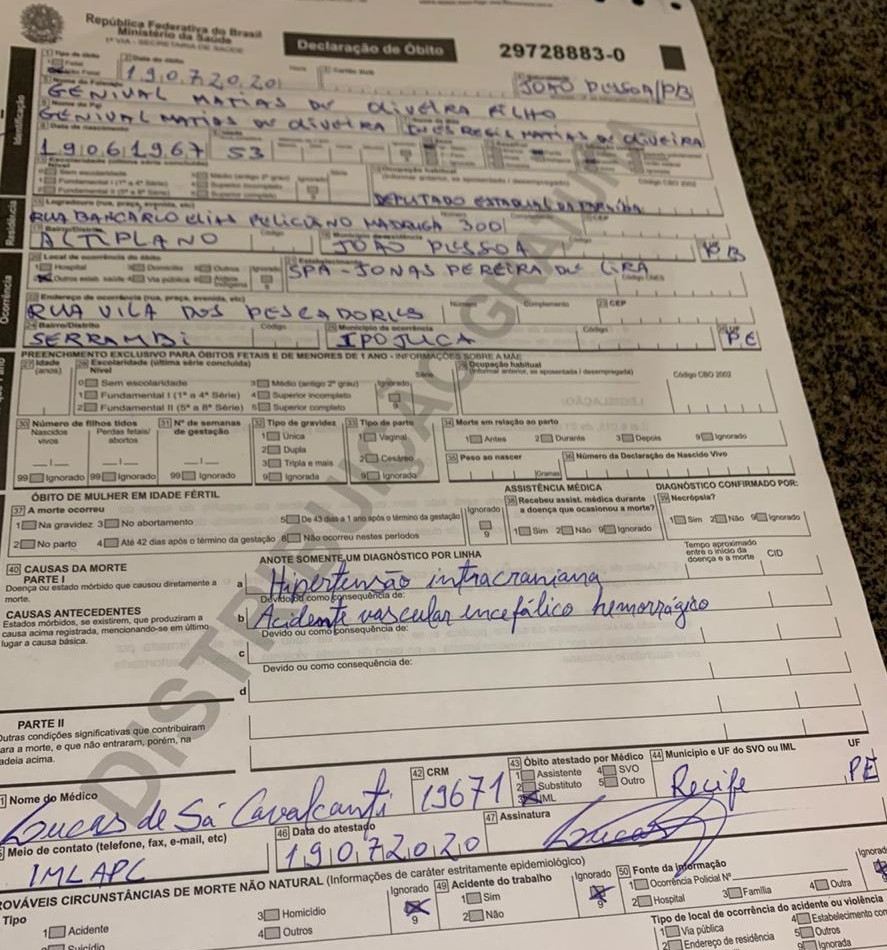 República Federativa do Brasil
Ministério da Saúde
1ª VIA - SECRETARIA DE SAÚDE
Declaração de Óbito
29728883-0
Identificação
Tipo de óbito
Data do óbito
Cartão SUS
19072020
JOÃO PESSOA/PB
GENIVAL MATIAS DE OLIVEIRA FILHO
GENIVAL MATIAS DE OLIVEIRA INES REGIS MATIAS DE OLIVEIRA
Data de nascimento
19061967 53
Escolaridade (última série concluída)
Ocupação habitual
Nível
Sem escolaridade
Médio (antigo 2º grau)
Ignorado
Fundamental I (1ª a 4ª Série)
Superior incompleto
Fundamental II (5ª a 8ª Série)
Superior completo
DEPUTADO ESTADUAL DA PARAÍBA
Residência
Logradouro (rua, praça, avenida, etc)
CEP
RUA BANCARIO ELIAS FELICIANO MADRUGA 300
ALTIPLANO JOÃO PESSOA PB
Ocorrência
20 Local de ocorrência do óbito
1 Hospital
3 Domicílio
5 Outros
Ignorado
4 Via pública
SPA - JONAS PEREIRA DE LIRA
Endereço de ocorrência (rua, praça, avenida, etc)
Número
Complemento
CEP
RUA VILA DOS PESCADORES
Bairro/Distrito
Código
Município de ocorrência
Código
SERRAMBI IPOJUCA PE
PREENCHIMENTO EXCLUSIVO PARA ÓBITOS FETAIS E DE MENORES DE 1 ANO - INFORMAÇÕES SOBRE A MÃE
27 Idade (anos)
28 Escolaridade (última série concluída)
Nível
Série
29 Ocupação habitual
(informar anterior, se aposentada / desempregada)
Código CBO 2002
0 Sem escolaridade
3 Médio (antigo 2º grau)
Ignorado
1 Fundamental I (1ª a 4ª Série)
4 Superior incompleto
9
2 Fundamental II (5ª a 8ª Série)
5 Superior completo
30 Número de filhos tidos
31 Nº de semanas de gestação
32 Tipo de gravidez
33 Tipo de parto
34 Morte em relação ao parto
Nascidos vivos
Perdas fetais/ abortos
1 Única
1 Vaginal
1 Antes
2 Durante
3 Depois
9 Ignorado
2 Dupla
2 Cesáreo
35 Peso ao nascer
36 Número da Declaração de Nascido Vivo
3 Tripla e mais
99 Ignorado
99 Ignorado
99 Ignorado
9 Ignorada
9 Ignorado
Gramas
ÓBITO DE MULHER EM IDADE FÉRTIL
ASSISTÊNCIA MÉDICA
DIAGNÓSTICO CONFIRMADO POR:
37 A morte ocorreu
Ignorado
38 Recebeu assist. médica durante a doença que ocasionou a morte?
39 Necrópsia?
1 Na gravidez
3 No abortamento
5 De 43 dias a 1 ano após o término da gestação
9
1 Sim 2 Não 9 Ignorado
1 Sim 2 Não 9 Ignorado
2 No parto
4 Até 42 dias após o término da gestação
8 Não ocorreu nestes períodos
40 CAUSAS DA MORTE
ANOTE SOMENTE UM DIAGNÓSTICO POR LINHA
Tempo aproximado entre o início da doença e a morte
CID
PARTE I
Doença ou estado mórbido que causou diretamente a morte.
a Hipertensão intracraniana
Devido ou como consequência de:
CAUSAS ANTECEDENTES
Estados mórbidos, se existirem, que produziram a causa acima registrada, mencionando-se em último lugar a causa básica.
b Acidente vascular encefálico hemorrágico
Devido ou como consequência de:
c
Devido ou como consequência de:
d
PARTE II
Outras condições significativas que contribuíram para a morte, e que não entraram, porém, na cadeia acima.
DISTRIBUIÇÃO GRATUITA
Nome do Médico
42 CRM
43 Óbito atestado por Médico
44 Município e UF do SVO ou IML
UF
Lucas de Sá Cavalcanti
19671
1 Assistente
4 SVO
2 Substituto
5 Outro
3 IML
Recife
PE
Meio de contato (telefone, fax, e-mail, etc)
46 Data do atestado
47 Assinatura
IMLAPC
19072020
PROVÁVEIS CIRCUNSTÂNCIAS DE MORTE NÃO NATURAL (Informações de caráter estritamente epidemiológico)
Tipo
Ignorado
49 Acidente do trabalho
Ignorado
50 Fonte da informação
Ignorada
1 Acidente
3 Homicídio
9
1 Sim
9
1 Ocorrência Policial Nº
2 Suicídio
4 Outros
2 Não
2 Hospital
3 Família
4 Outra
Tipo de local de ocorrência do acidente ou violência
1 Via pública
4 Estabelecimento
2 Endereço de residência
5 Outros
9 Ignorada